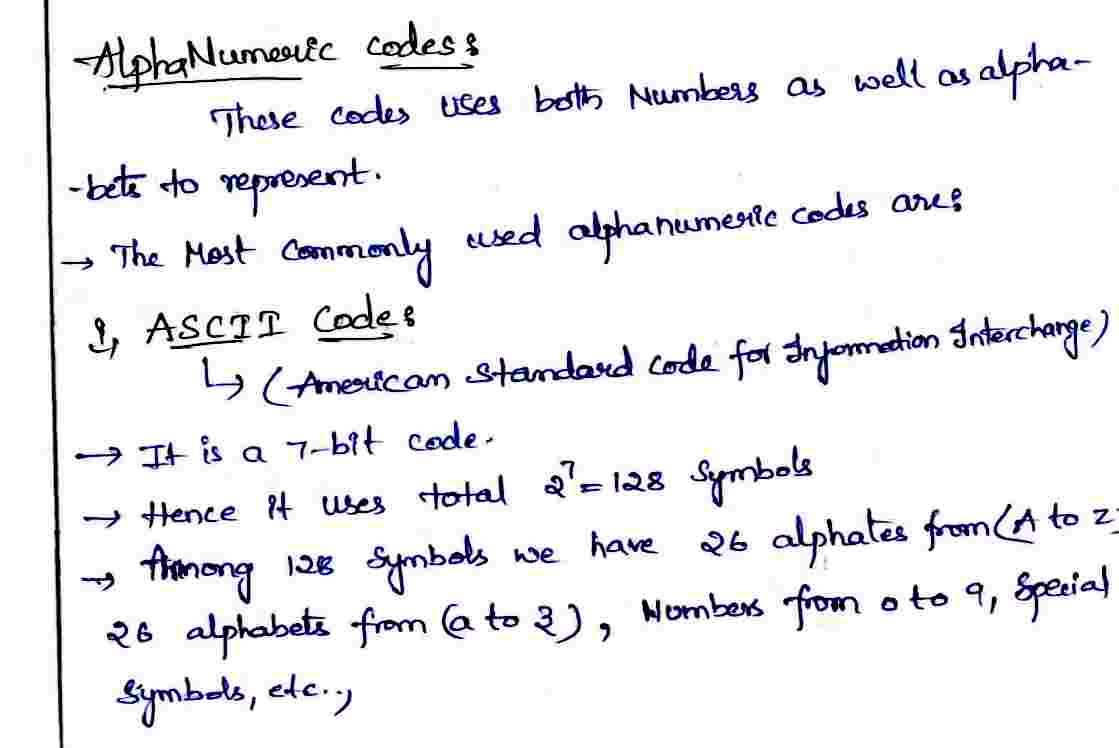 AlphaNumeric codes:
These codes uses both Numbers as well as alpha-
-bets to represent.
→ The Most Commonly used alphanumeric codes are:
1, ASCII Code:
↳ (American Standard Code for Information Interchange)
→ It is a 7-bit code.
→ Hence it uses total 2⁷=128 Symbols
→ Among 128 Symbols we have 26 alphates from (A to Z)
26 alphabets from (a to z), Numbers from 0 to 9, Special
Symbols, etc..,